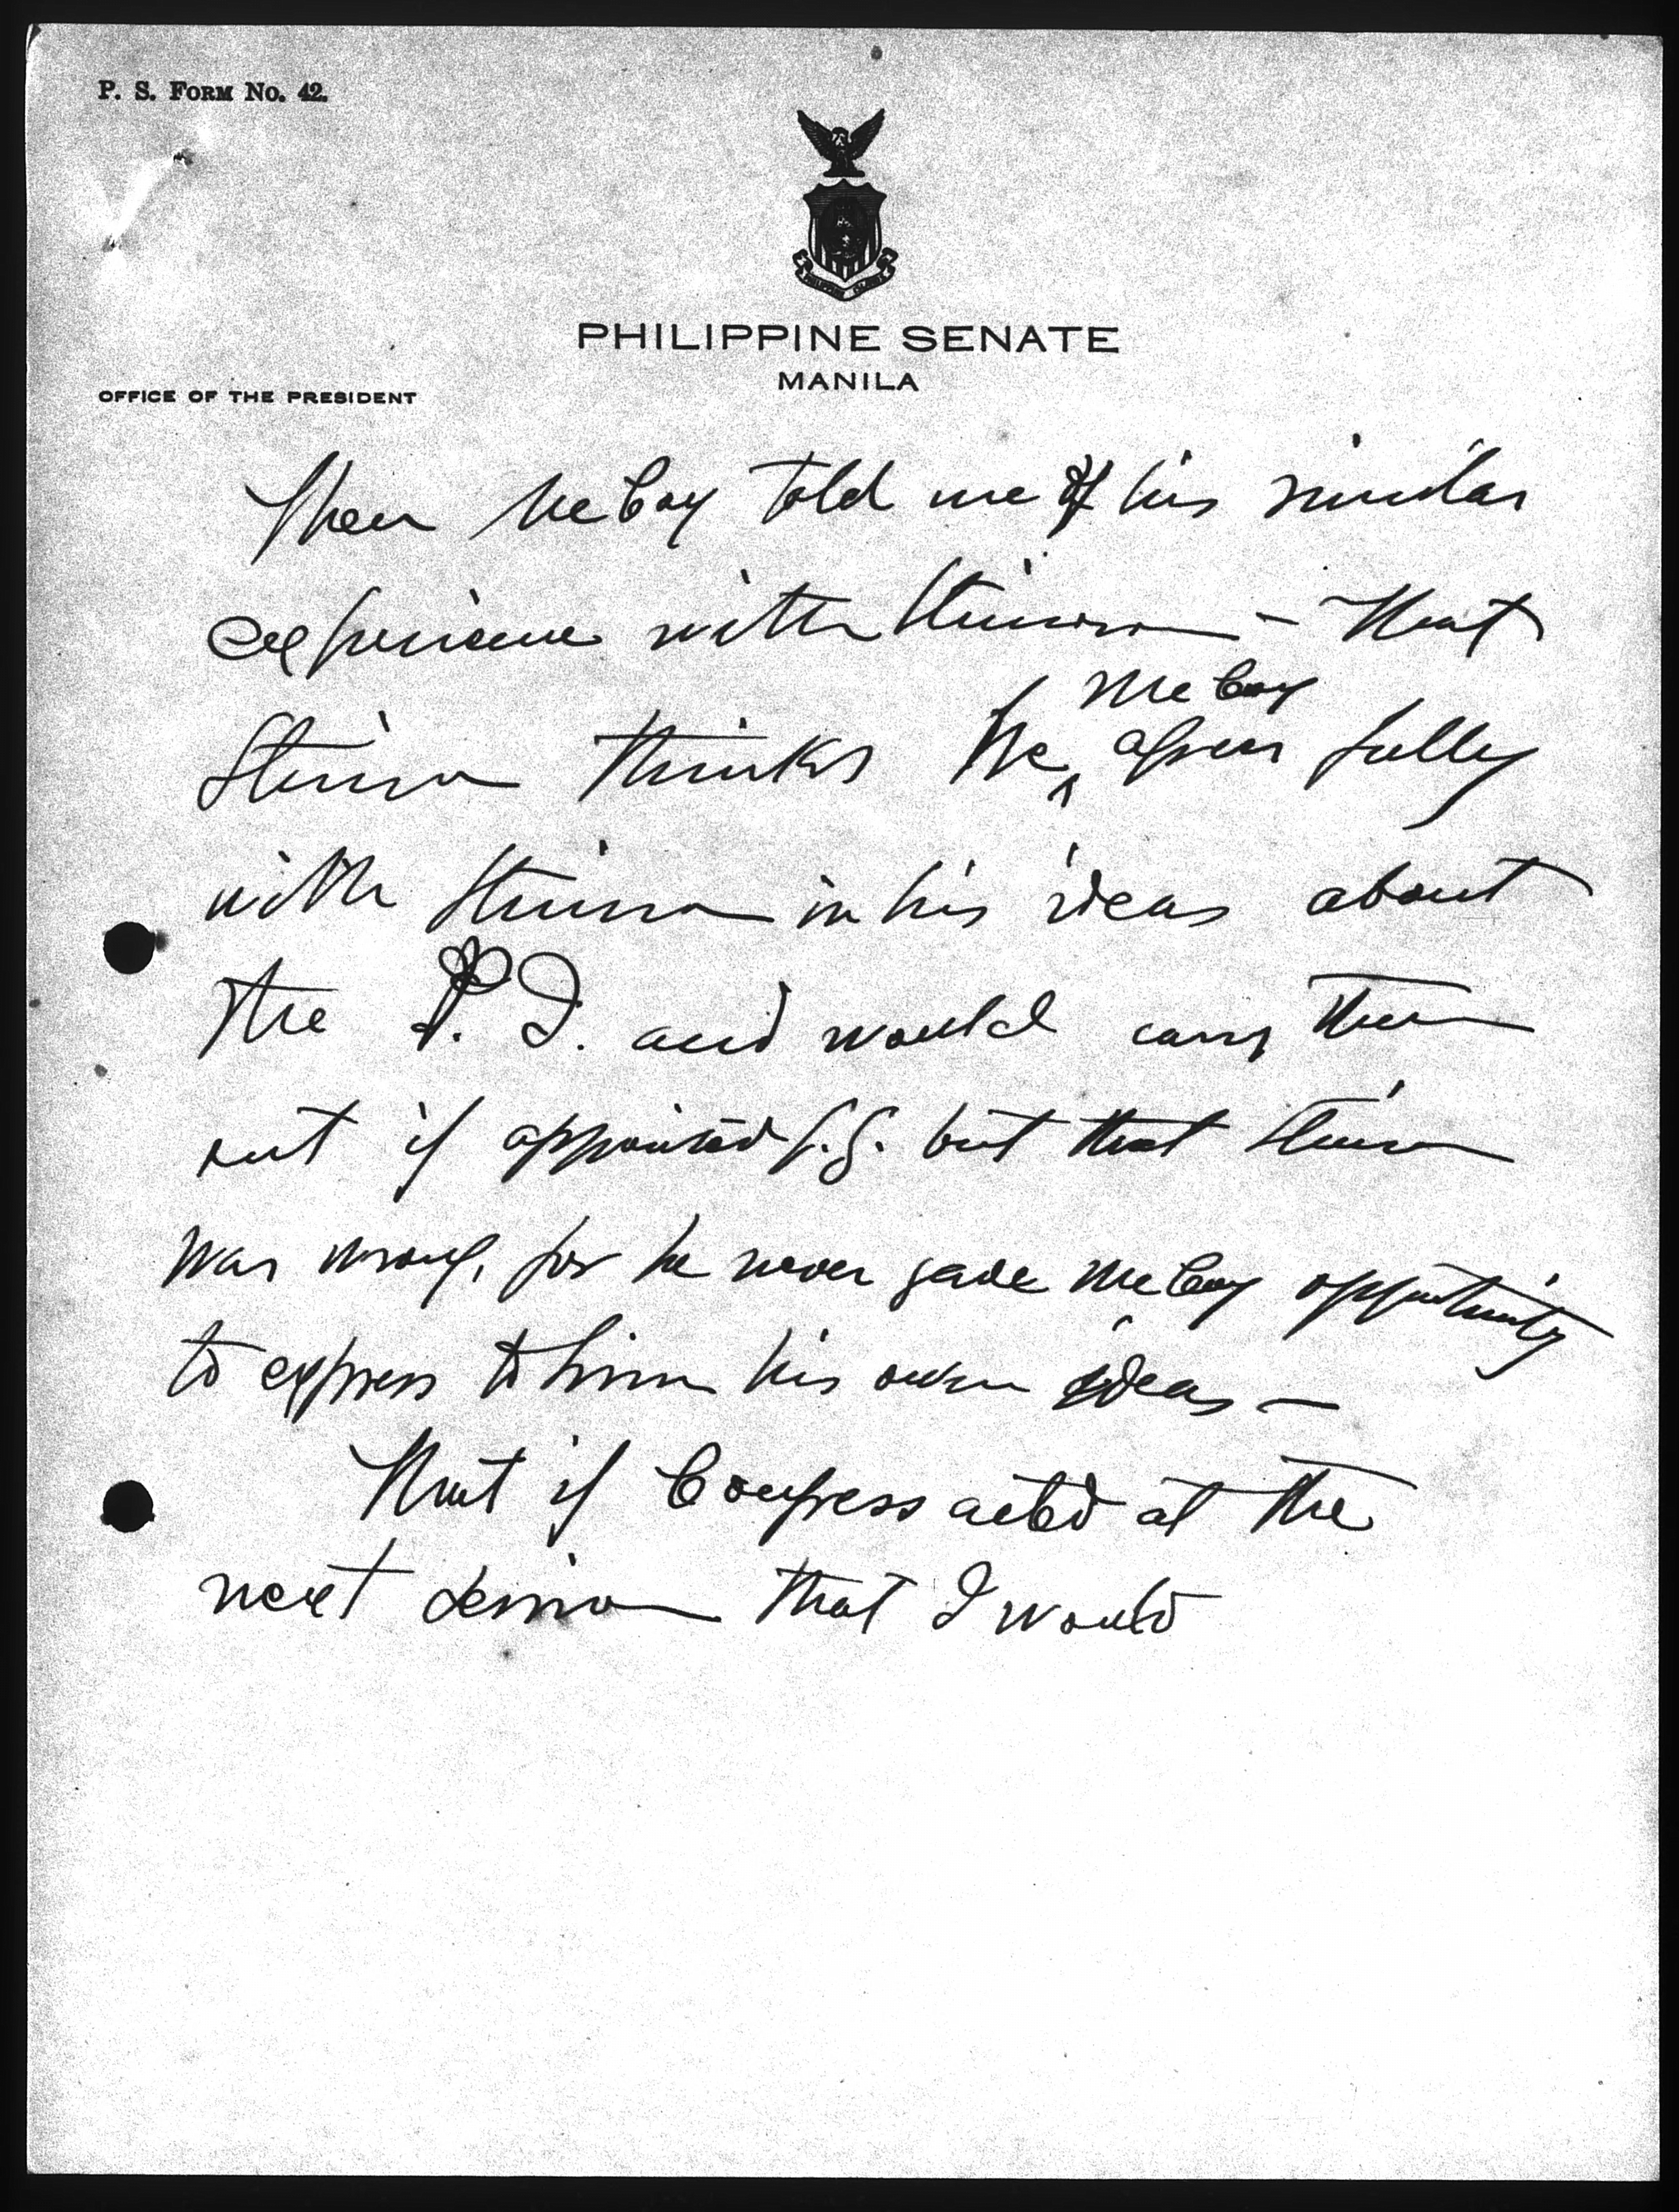 P. S. FORM No. 42.
PHILIPPINE SENATE
MANILA
OFFICE OF THE PRESIDENT
Then McCoy told me of his similar
experience with Stimson - that
McCoy
Stimson thinks he agrees fully
with Stimson in his ideas about
the P. I. and would carry them
out if appointed G.G. but that Stimson
was wrong, for he never gave McCoy opportunity
to express to him his own ideas —
That if Congress acted at the
next session that I would